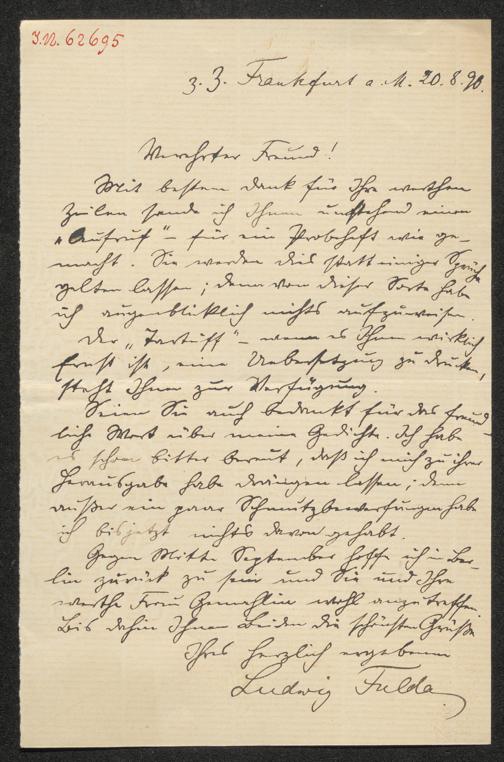 J.N. 62695
z. Z. Frankfurt a. M. 20.8.90.
Verehrter Freund!
Mit bestem Dank für Ihre werthen
Zeilen sende ich Ihnen umstehend einen
„Aufruf" – für ein Probeheft wie ge-
macht. Sie werden dies statt einiger Sprüche
gelten lassen; denn von dieser Sorte habe
ich augenblicklich nichts aufzuweisen.
Der „Tartuff" – wenn es Ihnen wirklich
Ernst ist, eine Uebersetzung zu drucken,
steht Ihnen zur Verfügung.
Seien Sie auch bedankt für das freund-
liche Wort über meine Gedichte. Ich habe
es schon bitter bereut, daß ich mich zu ihrer
Herausgabe habe drängen lassen; denn
außer ein paar Schmutzbewerfungen habe
ich bis jetzt nichts davon gehabt.
Gegen Mitte September hoffe ich in Ber-
lin zurück zu sein und Sie und Ihre
werthe Frau Gemahlin wohl anzutreffen.
Bis dahin Ihnen Beiden die schönsten Grüße
Ihres herzlich ergebenen
Ludwig Fulda